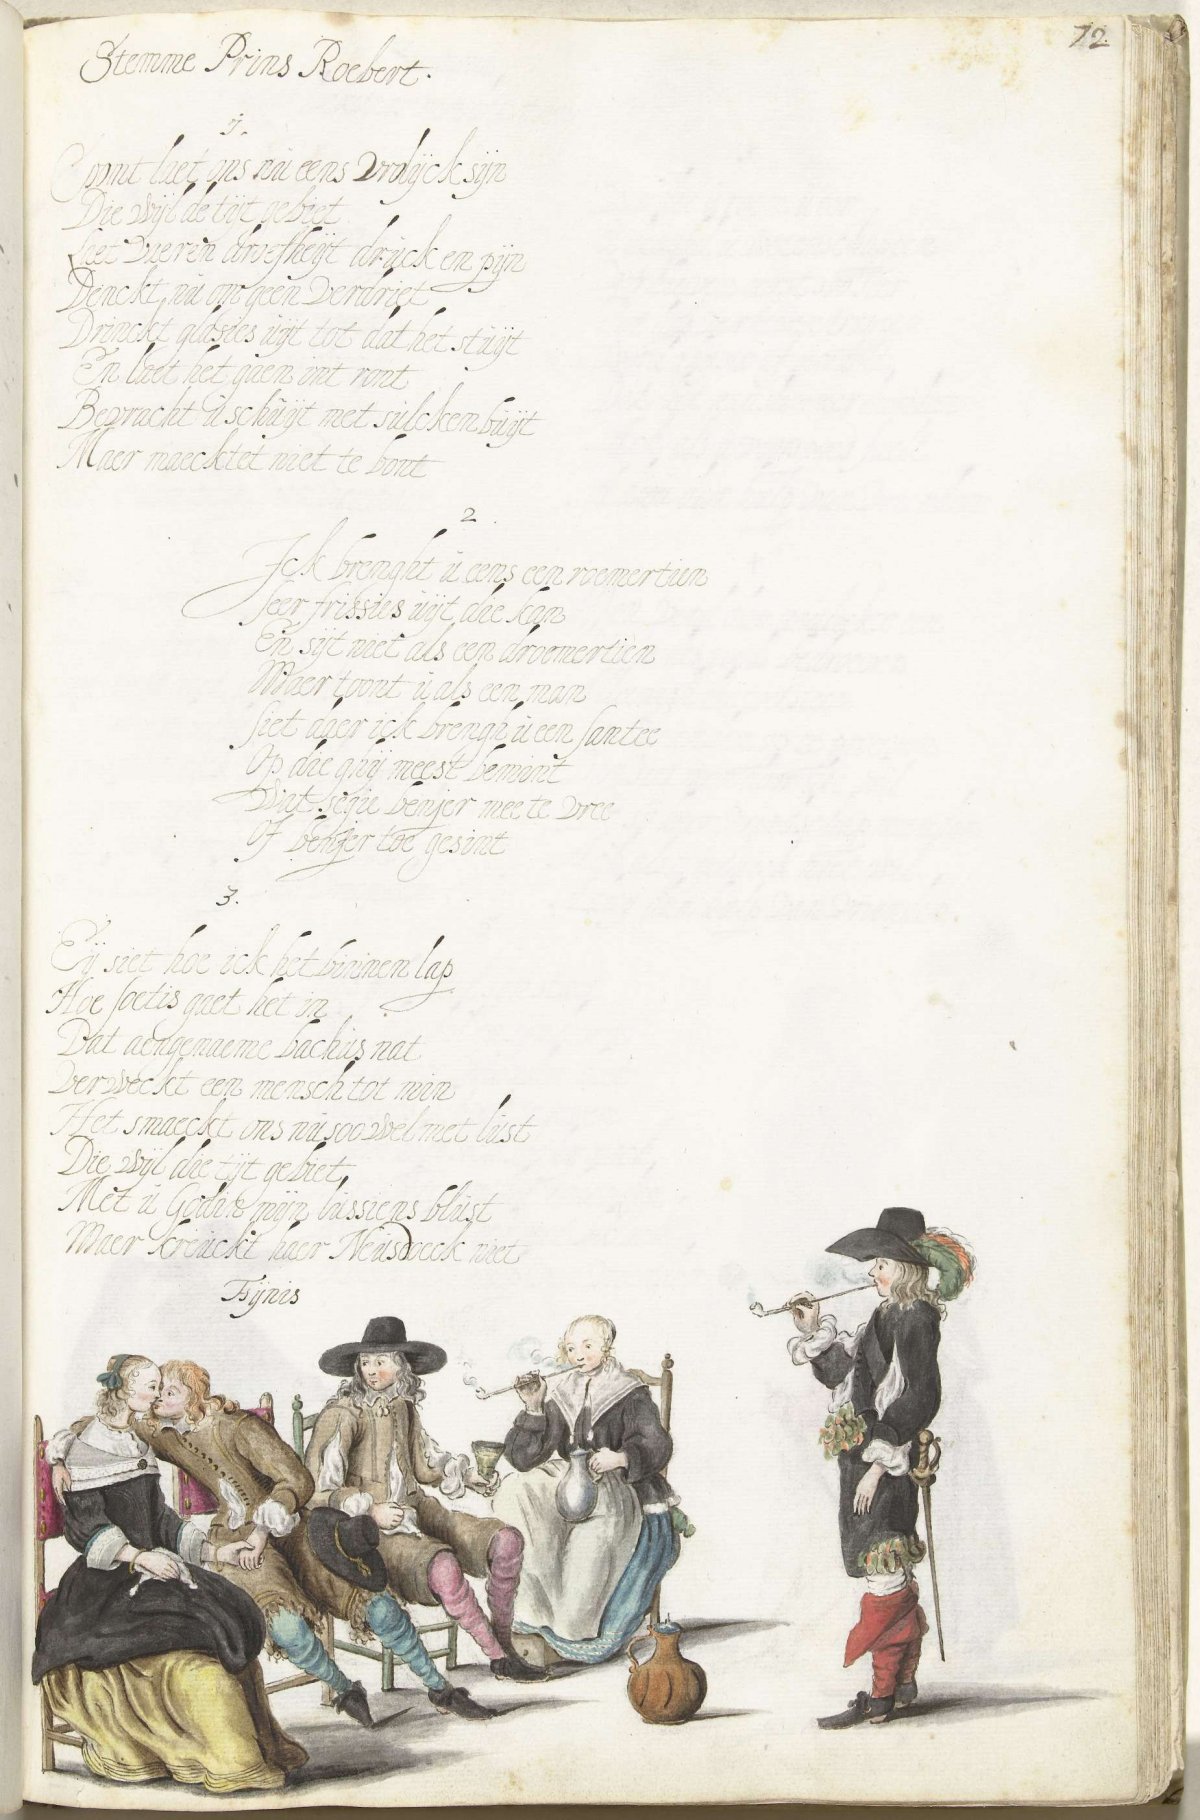 72
Stemme Prins Roebert.
1.
Comt laet ons nu eens vrolijck sijn
Die wijl de tijt gebiet
Laet vaeren droefheijt druck en pijn
Denckt nu om geen verdriet
Drinckt glasies uijt tot dat het stuijt
En laet het gaen int ront
Bevracht u schuijt met sulcken buijt
Maer maecktet niet te bont
2.
Ick brenght u eens een roemertien
seer frissies uijt die kan
En sijt niet als een droemertien
Maer toont u als een man
siet daer ick brengh u een santee
Op die ghij meest bemint
Wat segie benjer mee te vree
Of benjer toe gesint
3.
Eij siet hoe ick het binnen lap
Hoe soetis gaet het in
Dat aengenaeme bachus nat
Verweckt een mensch tot min
Het smaeckt ons nu soo wel met lust
Die wijl die tijt gebiet
Met u Godin mijn lussiens blust
Maer kreuckt haer Neusdoeck niet
Fijnis